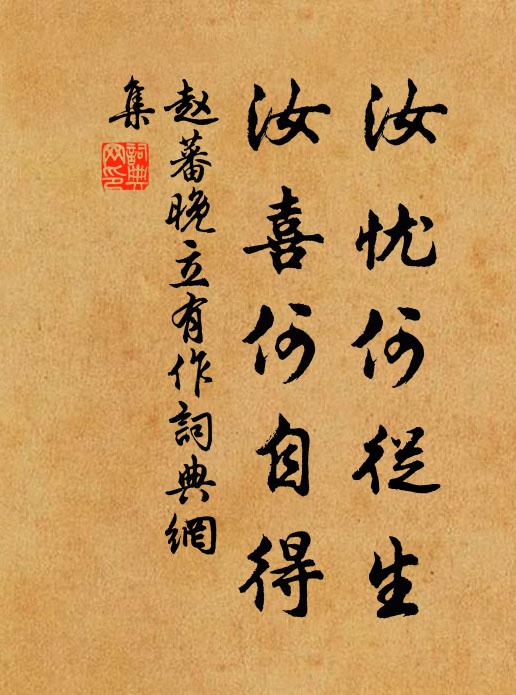 汝忧何從生
汝喜何自得
赵蕃晚立有作詞典網
集
詞典
网印